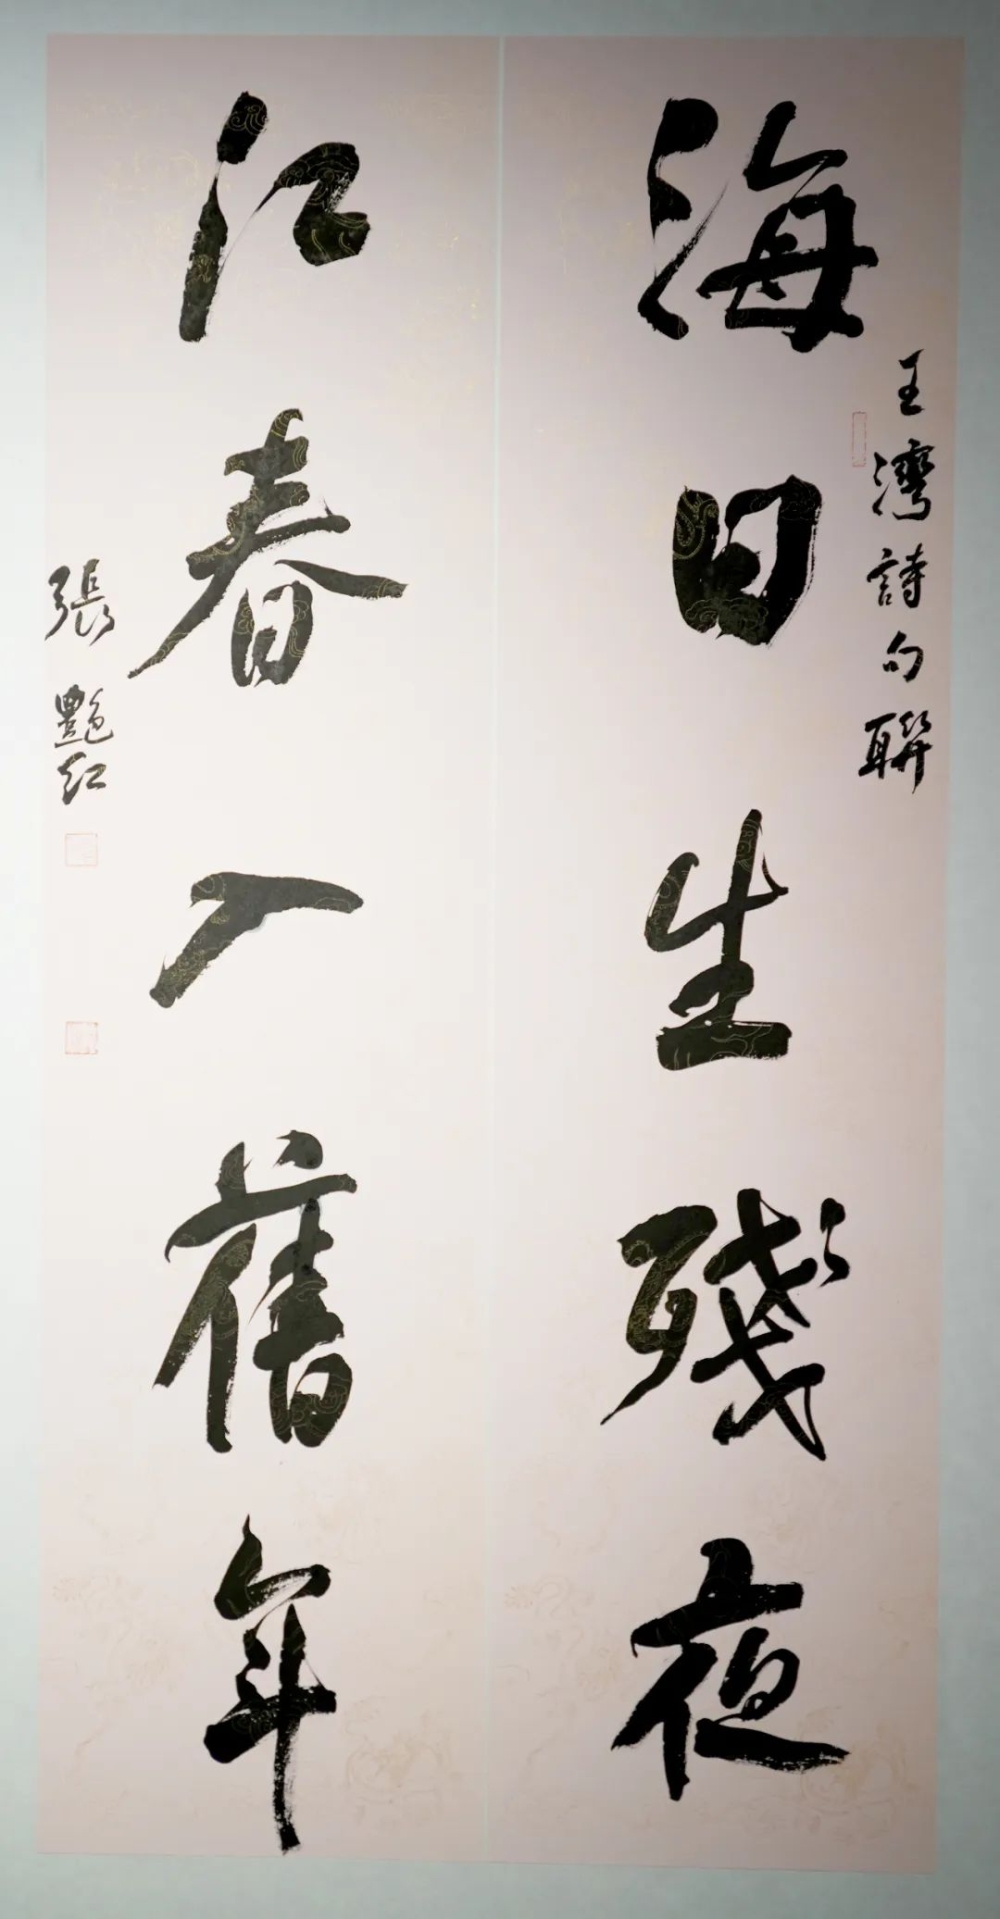 王灣詩句聯
海日生殘夜
江春入舊年
張豔红